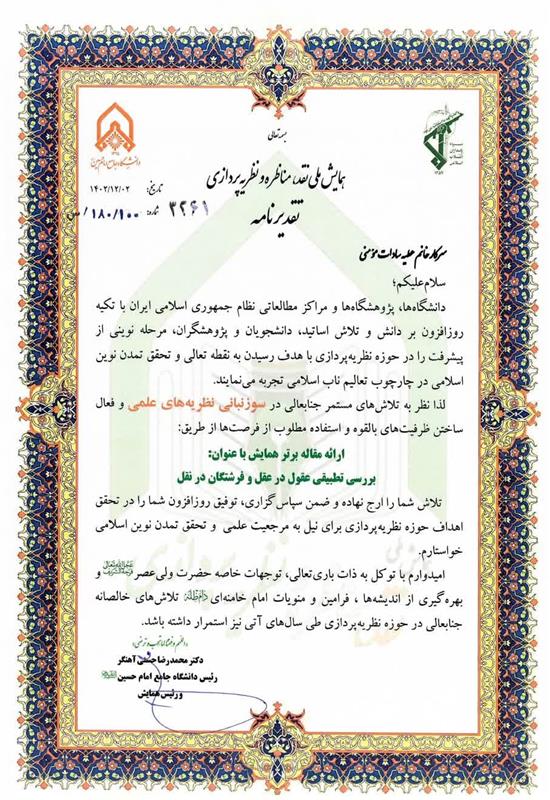 بسمه تعالی
دانشگاه جامع امام حسین
سپاه
پاسداران
انقلاب
اسلامی
همایش ملی نقد، مناظره و نظریه پردازی
تاریخ: ۱۴۰۲/۱۲/۰۲
تقدیرنامه
شماره: ۳۲۶۱ /۱۸۰/۱۰۰/س
سرکار خانم عطیه سادات مؤمنی
سلام‌علیکم؛
دانشگاه‌ها، پژوهشگاه‌ها و مراکز مطالعاتی نظام جمهوری اسلامی ایران با تکیه
روزافزون بر دانش و تلاش اساتید، دانشجویان و پژوهشگران، مرحله نوینی از
پیشرفت را در حوزه نظریه‌پردازی با هدف رسیدن به نقطه تعالی و تحقق تمدن نوین
اسلامی در چارچوب تعالیم ناب اسلامی تجربه می‌نمایند.
لذا نظر به تلاش‌های مستمر جنابعالی در سوزنبانی نظریه‌های علمی و فعال
ساختن ظرفیت‌های بالقوه و استفاده مطلوب از فرصت‌ها از طریق:
ارائه مقاله برتر همایش با عنوان:
بررسی تطبیقی عقول در عقل و فرشتگان در نقل
تلاش شما را ارج نهاده و ضمن سپاس‌گزاری، توفیق روزافزون شما را در تحقق
اهداف حوزه نظریه‌پردازی برای نیل به مرجعیت علمی و تحقق تمدن نوین اسلامی
خواستارم.
امیدوارم با توکل به ذات باری‌تعالی، توجهات خاصه حضرت ولی‌عصر و
بهره‌گیری از اندیشه‌ها ، فرامین و منویات امام خامنه‌ای تلاش‌های خالصانه
جنابعالی در حوزه نظریه‌پردازی طی سال‌های آتی نیز استمرار داشته باشد.
دکتر محمدرضا حسنی آهنگر
رئیس دانشگاه جامع امام حسین
و رئیس همایش